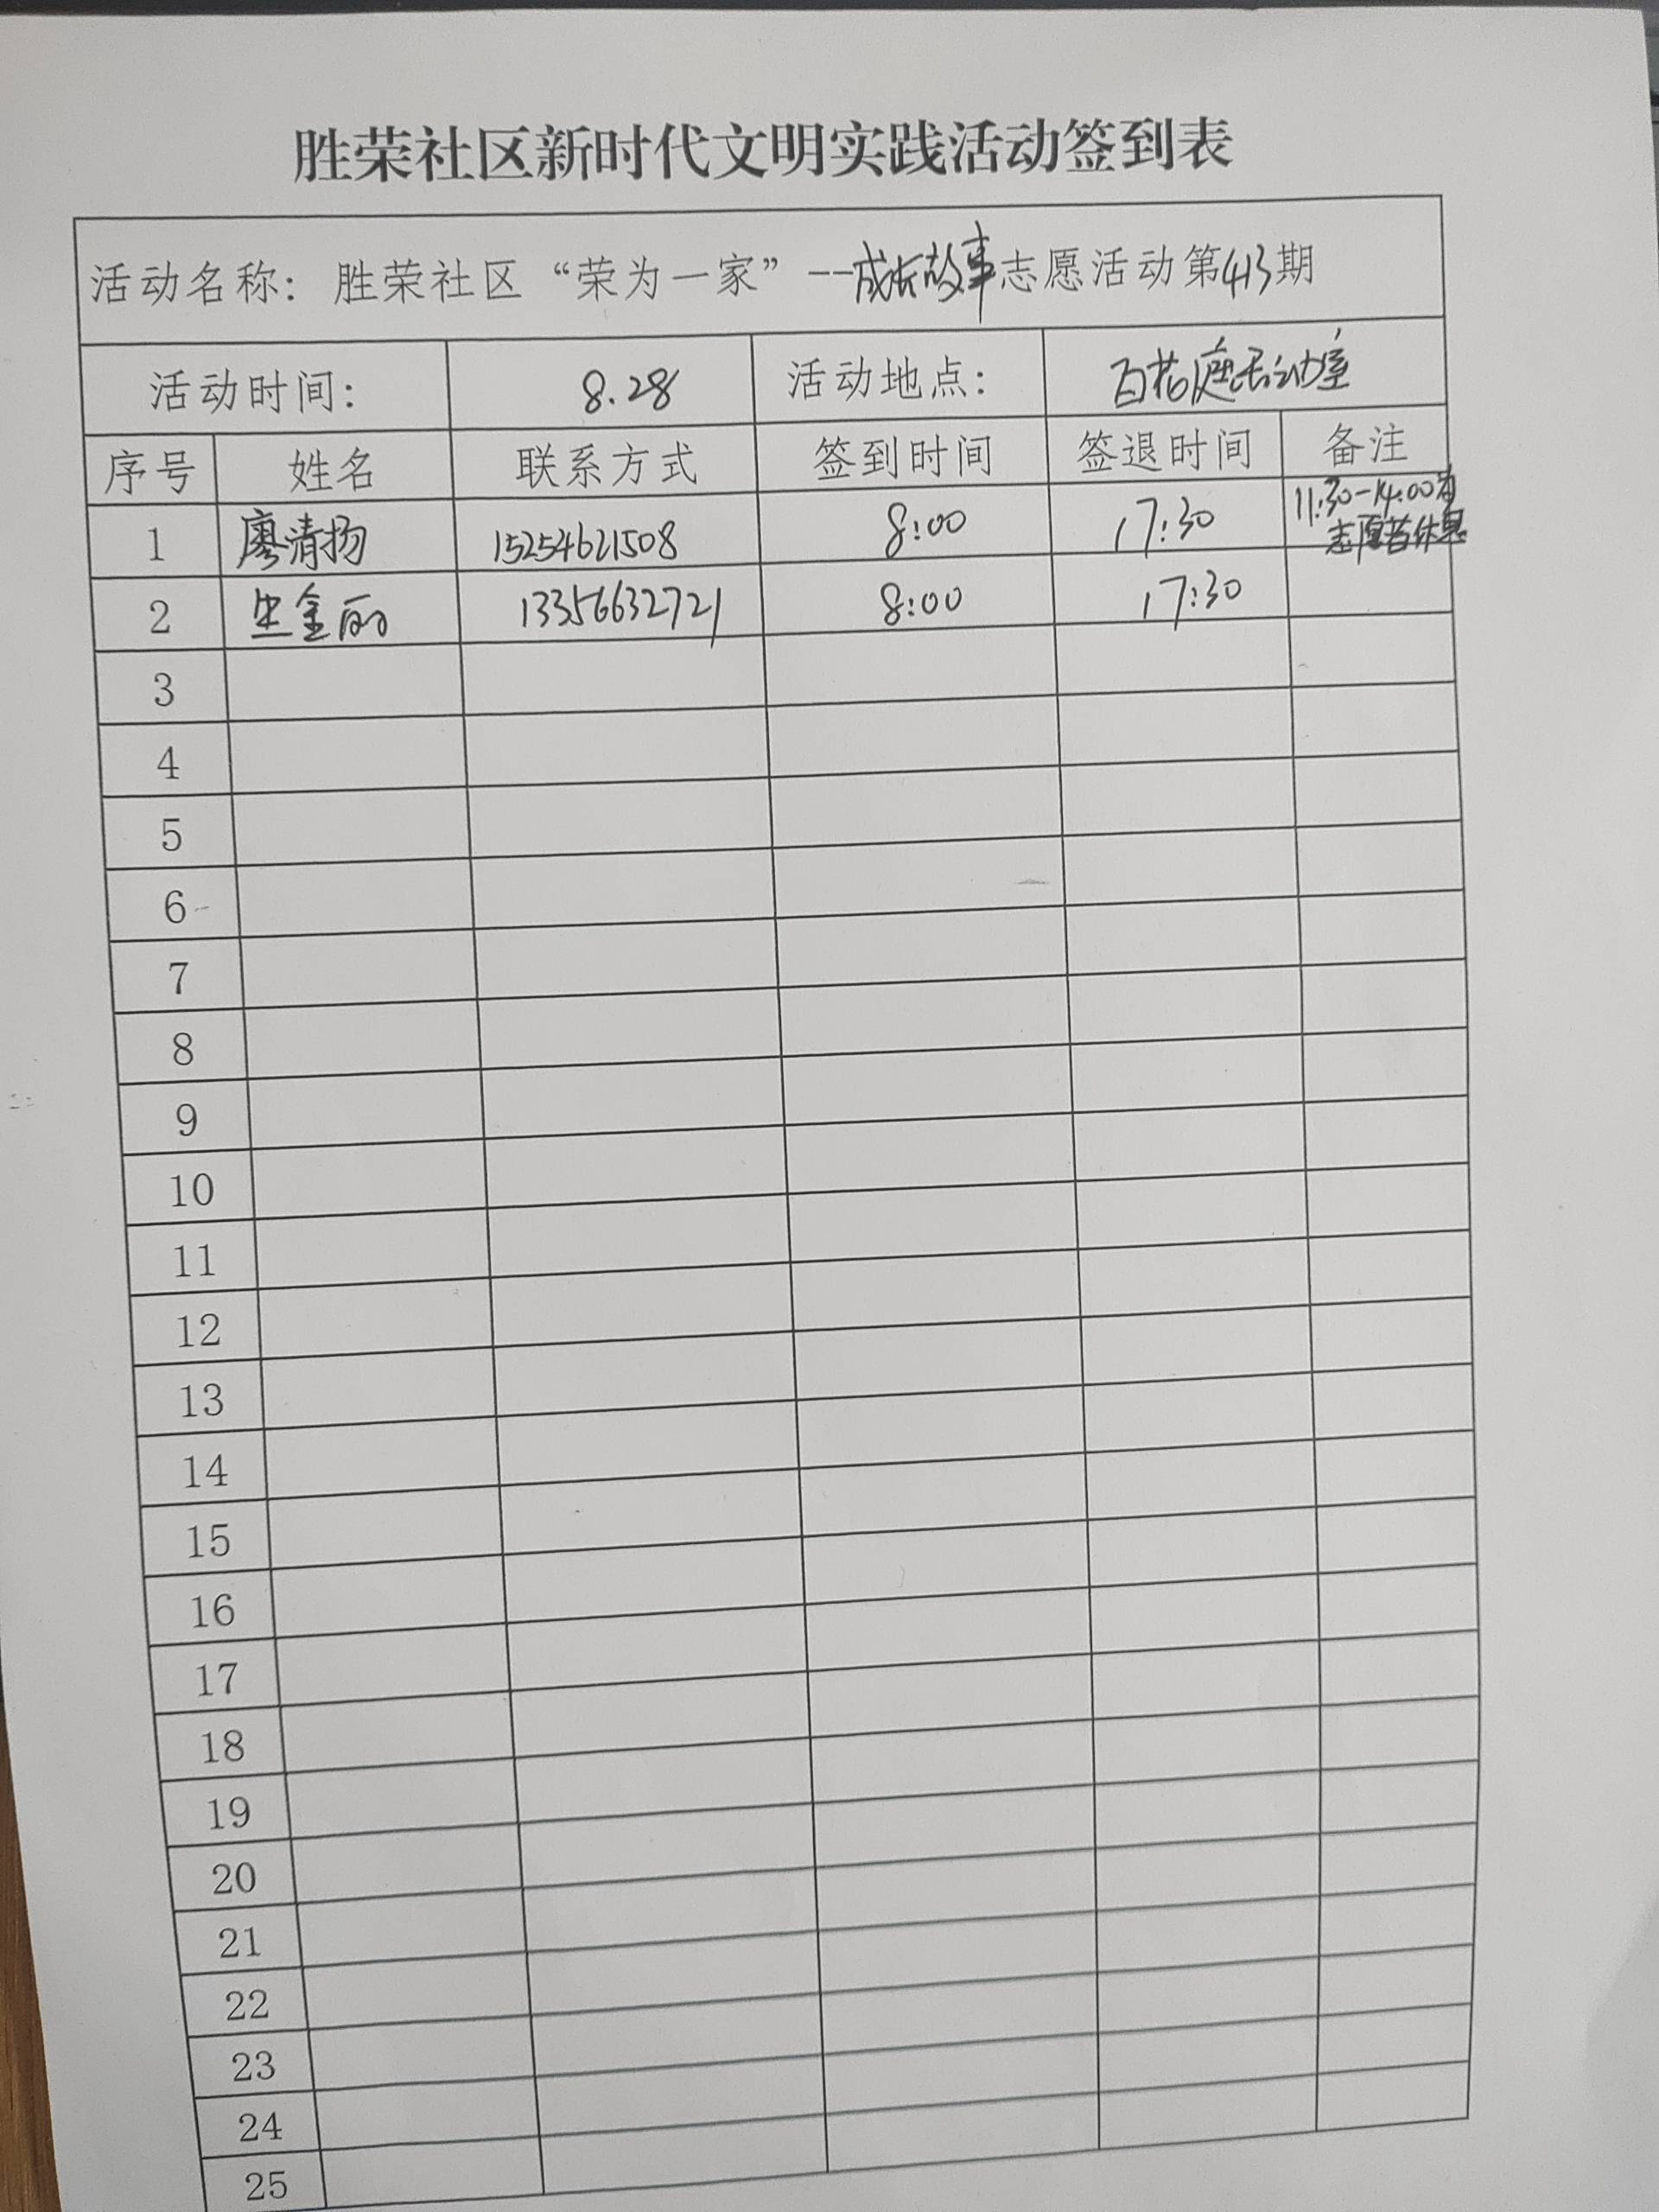 胜荣社区新时代文明实践活动签到表
活动名称：胜荣社区“荣为一家”--成长故事志愿活动第413期
活动时间： 8.28 活动地点： 百花庭活动室
序号 姓名 联系方式 签到时间 签退时间 备注
1 廖清扬 15254621508 8:00 17:30 11:30-14:00为
志愿者休息
2 生金丽 13356632721 8:00 17:30
3
4
5
6
7
8
9
10
11
12
13
14
15
16
17
18
19
20
21
22
23
24
25